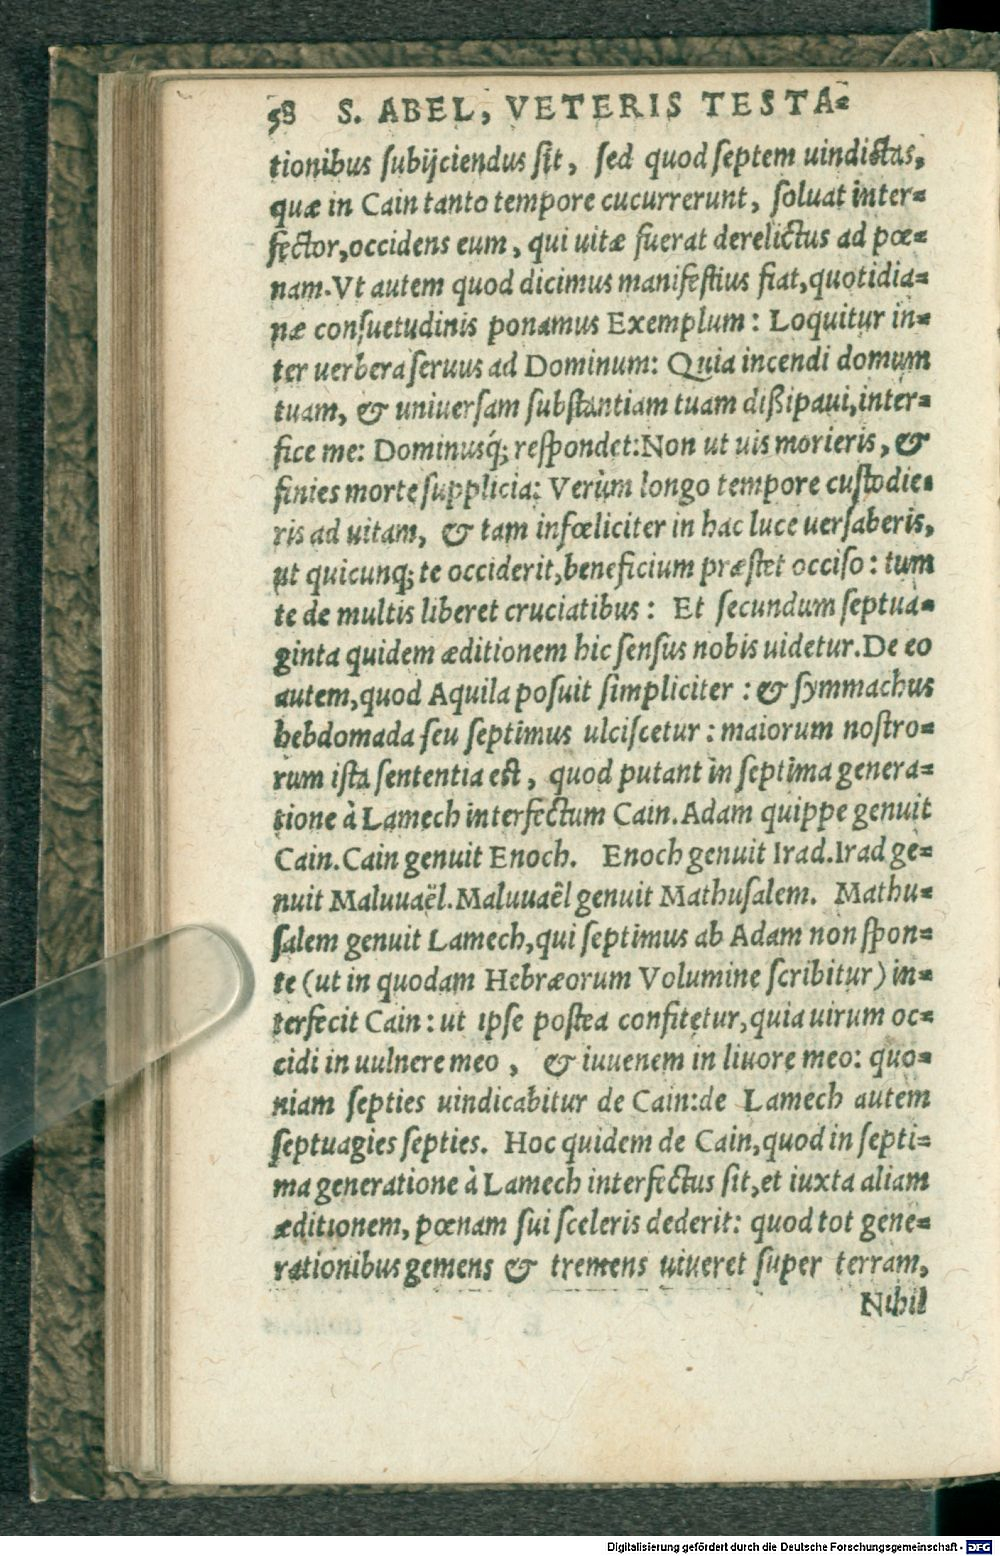 58 S. ABEL, VETERIS TESTA-
tionibus subijciendus sit, sed quod septem uindictas,
quæ in Cain tanto tempore cucurrerunt, soluat inter-
fector, occidens eum, qui uitæ fuerat derelictus ad pœ-
nam. Vt autem quod dicimus manifestius fiat, quotidia-
næ consuetudinis ponamus Exemplum: Loquitur in-
ter uerbera seruus ad Dominum: Quia incendi domum
tuam, & uniuersam substantiam tuam dißipaui, inter-
fice me: Dominusq́; respondet: Non ut uis morieris, &
finies morte supplicia: Verùm longo tempore custodie-
ris ad uitam, & tam infœliciter in hac luce uersaberis,
ut quicunq; te occiderit, beneficium præstet occiso: tum
te de multis liberet cruciatibus: Et secundum septua-
ginta quidem æditionem hic sensus nobis uidetur. De eo
autem, quod Aquila posuit simpliciter: & symmachus
hebdomada seu septimus ulciscetur: maiorum nostro-
rum ista sententia est, quod putant in septima genera-
tione à Lamech interfectum Cain. Adam quippe genuit
Cain. Cain genuit Enoch. Enoch genuit Irad. Irad ge-
nuit Maluuaël. Maluuaêl genuit Mathusalem. Mathu-
salem genuit Lamech, qui septimus ab Adam non spon-
te (ut in quodam Hebræorum Volumine scribitur) in-
terfecit Cain: ut ipse postea confitetur, quia uirum oc-
cidi in uulnere meo, & iuuenem in liuore meo: quo-
niam septies uindicabitur de Cain: de Lamech autem
septuagies septies. Hoc quidem de Cain, quod in septi-
ma generatione à Lamech interfectus sit, et iuxta aliam
æditionem, pœnam sui sceleris dederit: quod tot gene-
rationibus gemens & tremens uiueret super terram,
Nihil
Digitalisierung gefördert durch die Deutsche Forschungsgemeinschaft - DFG